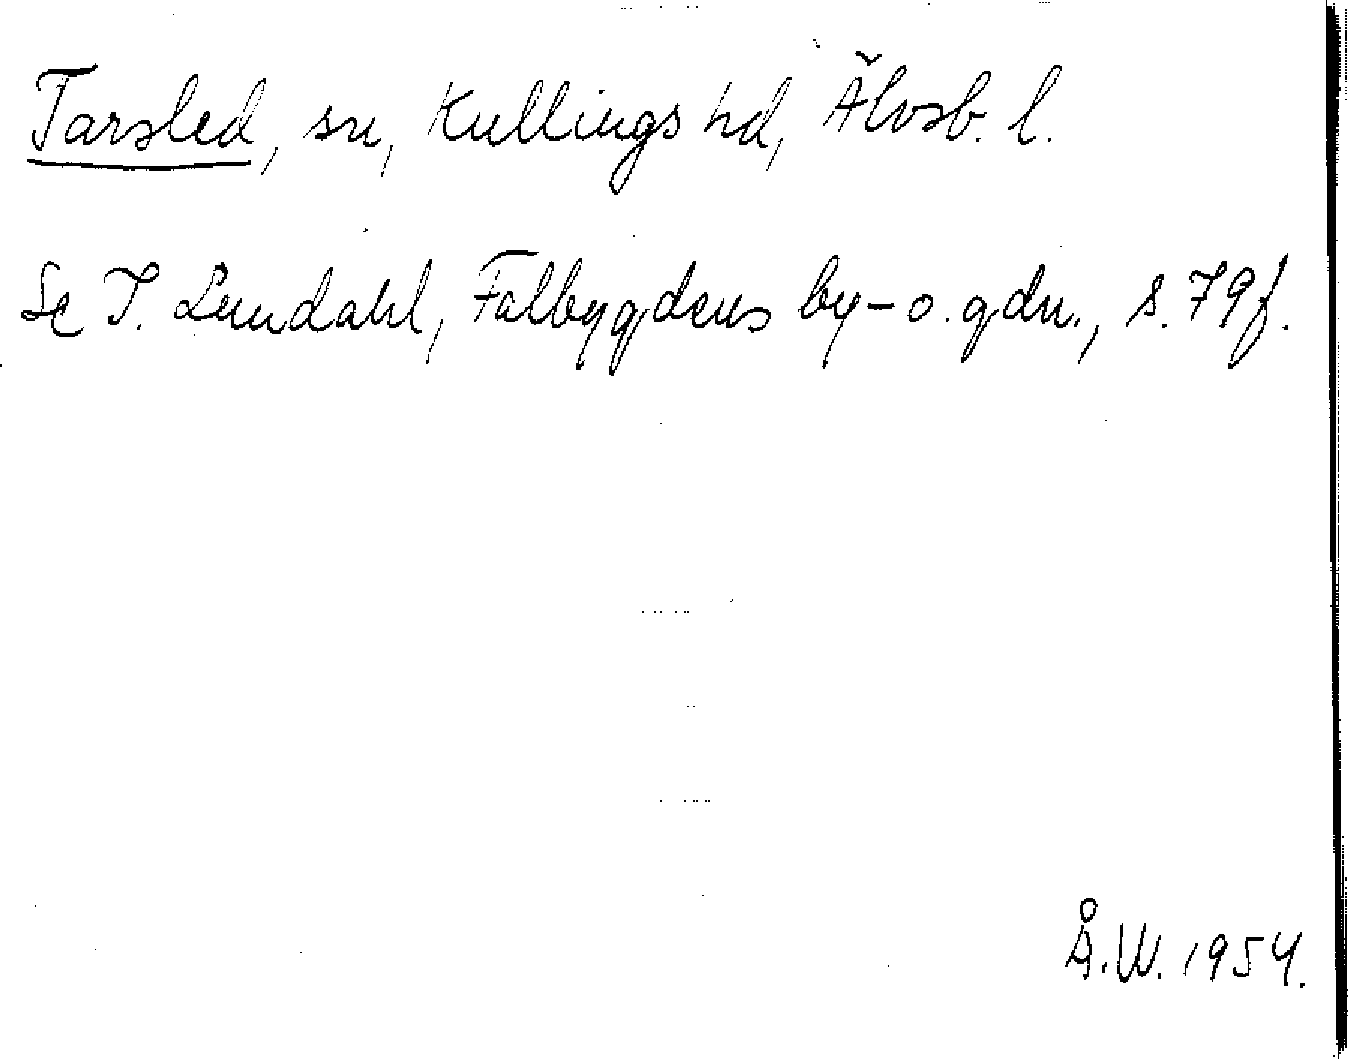 Tarsled, sn, Kullings hd, Älvsb. l.
Se I. Lundahl, Falbygdens by- o. gdn., s. 79f.
Å.W. 1954.